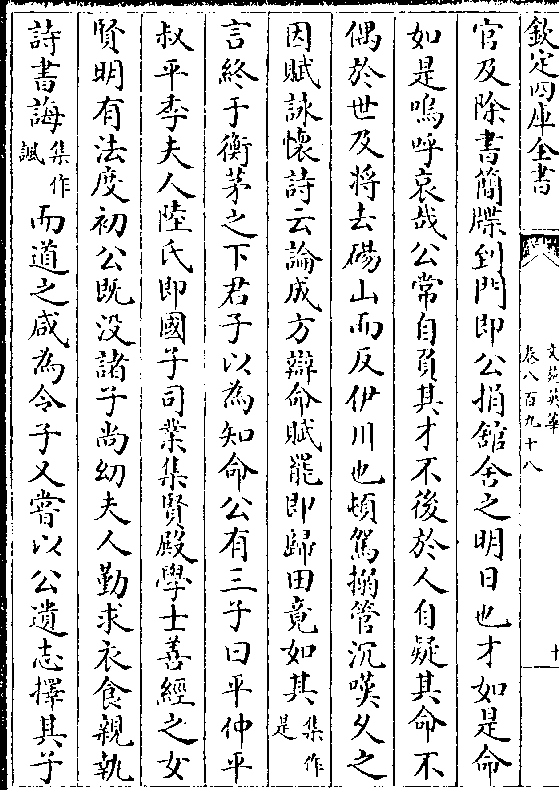 欽定四庫全書
文苑英華
卷八百九十八
十
官及除書簡牒到門即公捐舘舍之明日也才如是命
如是嗚呼哀哉公常自負其才不後於人自疑其命不
偶於世及將去碭山而反伊川也頓駕搦管沉嘆久之
因賦詠懷詩云論成方辯命賦罷即歸田竟如其集作是
言終于衡茅之下君子以為知命公有三子曰平仲平
叔平季夫人陸氏即國子司業集賢殿學士善經之女
賢明有法度初公既没諸子尚幼夫人勤求衣食親執
詩書誨集作諷而道之咸為令子又嘗以公遺志擇其子